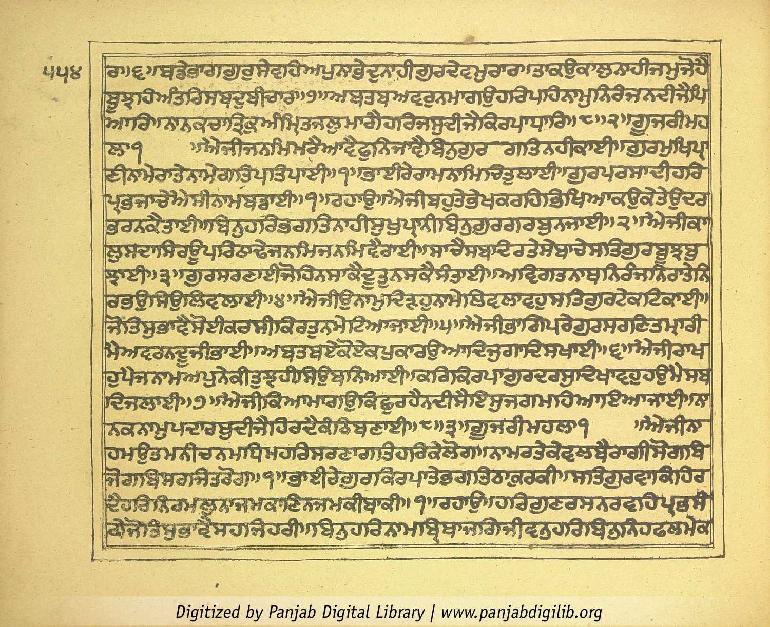 ੫੫੪
ਰਾ॥੬॥ਬਡੇਭਾਗਗੁਰੁਸੇਵਹਿਅਪੁਨਾਭੇਦੁਨਾਹੀਗੁਰਦੇਵਮੁਰਾਰ॥ਤਾਕਉਕਾਲੁਨਾਹੀਜਮੁਜੋਹੈ
ਬੂਝਹਿਅੰਤਰਿਸਬਦੁਬੀਚਾਰਾ॥੭॥ਅਬਤਬਅਵਰੁਨਮਾਗਉਹਰਿਪਹਿਨਾਮੁਨਿਰੰਜਨਦੀਜੈਪਿ
ਆਰਿ॥ਨਾਨਕਚਾਤ੍ਰਿਕੁਅੰਮ੍ਰਿਤਜਲੁਮਾਗੈਹਰਿਜਸੁਦੀਜੈਕਿਰਪਾਧਾਰਿ॥੮॥੨॥ਗੂਜਰੀਮਹ
ਲਾ੧ ॥ਐਜੀਜਨਮਿਮਰੈਆਵੈਫੁਨਿਜਾਵੈਬਿਨੁਗੁਰ ਗਤਿਨਹੀਕਾਈ॥ਗੁਰਮੁਖਿਪ੍ਰਾ
ਣੀਨਾਮੇਰਾਤੇਨਾਮੇਗਤਿਪਤਿਪਾਈ॥੧॥ਭਾਈਰੇਰਾਮਨਾਮਿਚਿਤੁਲਾਈ॥ਗੁਰਪਰਸਾਦੀਹਰਿ
ਪ੍ਰਭਜਾਚੇਐਸੀਨਾਮਬਡਾਈ॥੧॥ਰਹਾਉ॥ਐਜੀਬਹੁਤੇਭੇਖਕਰਹਿਭਿਖਿਆਕਉਕੇਤੇਉਦਰ
ਭਰਨਕੈਤਾਈ॥ਬਿਨੁਹਰਿਭਗਤਿਨਾਹੀਸੁਖੁਪ੍ਰਾਨੀਬਿਨੁਗੁਰਗਰਬੁਨਜਾਈ॥੨॥ਐਜੀਕਾ
ਲੁਸਦਾਸਿਰਊਪਰਿਠਾਢੇਜਨਮਿਜਨਮਿਵੈਰਾਈ॥ਸਾਚੈਸਬਦਿਰਤੇਸੇਬਾਚੇਸਤਿਗੁਰਬੂਝਬੁ
ਝਾਈ॥੩॥ਗੁਰਸਰਣਾਈਜੋਹਿਨਸਾਕੈਦੂਤੁਨਸਕੈਸੰਤਾਈ॥ਅਵਿਗਤਨਾਥਨਿਰੰਜਨਿਰਾਤੇਨਿ
ਰਭਉਸਿਉਲਿਵਲਾਈ॥੪॥ਐਜੀਉਨਾਮੁਦਿੜਹੁਨਾਮੇਲਿਵਲਾਵਹੁਸਤਿਗੁਰਟੇਕਟਿਕਾਈ॥
ਜੋਤਿਸੁਭਾਵੈਸੋਈਕਰਸੀਕਿਰਤੁਨਮੇਟਿਆਜਾਈ॥੫॥ਐਜੀਭਾਗਿਪਰੇਗੁਰਸਰਣਿਤੁਮਾਰੀ
ਮੈਅਵਰਨਦੂਜੀਭਾਈ॥ਅਬਤਬਏਕੋਏਕਪੁਕਾਰਉਆਦਿਜੁਗਾਦਿਸਖਾਈ॥੬॥ਐਜੀਰਾਖ
ਹੁਪੈਜਨਾਮਅਪੁਨੇਕੀਤੁਝਹੀਸਿਉਬਨਿਆਈ॥ਕਰਿਕਿਰਪਾਗੁਰਦਰਸੁਦਿਖਾਵਹੁਹਉਮੈਸਬ
ਦਿਜਲਾਈ॥੭॥ਐਜੀਕਿਆਮਾਗਉਕਿਛੁਰਹੈਨਦੀਸੈਇਸੁਜਗਮਹਿਆਇਆਜਾਈ॥ਨਾ
ਨਕਨਾਮੁਪਦਾਰਥੁਦੀਜੈਹਿਰਦੈਕੰਠਿਬਣਾਈ॥੮॥੩॥ਗੂਜਰੀਮਹਲਾ੧ ॥ਐਜੀਨਾ
ਹਮਉਤਮਨੀਚਨਮਧਿਮਹਰਿਸਰਣਾਗਤਿਹਰਿਕੇਲੋਗ॥ਨਾਮਰਤੇਕੇਵਲਬੈਰਾਗੀਸੋਗਬਿ
ਜੋਗਬਿਸਰਜਿਤਰੋਗ॥੧॥ਭਾਈਰੇਗੁਰਕਿਰਪਾਤੇਭਗਤਿਠਾਕੁਰਕੀ॥ਸਤਿਗੁਰਵਾਕਿਹਿਰ
ਦੈਹਰਿਨਿਰਮਲੁਨਾਜਮਕਾਣਿਨਜਮਕੀਬਾਕੀ॥੧॥ਰਹਾਉ॥ਹਰਿਗੁਣਰਸਨਰਵਹਿਪ੍ਰਭਸੰ
ਗੇਜੋਤਿਸੁਭਾਵੈਸਹਜਿਹਰੀ॥ਬਿਨੁਹਰਿਨਾਮਬ੍ਰਿਥਾਜਗਿਜੀਵਨੁਹਰਿਬਿਨੁਨਿਹਫਲਮੇਕ
Digitized by Panjab Digital Library | www.panjabdigilib.org